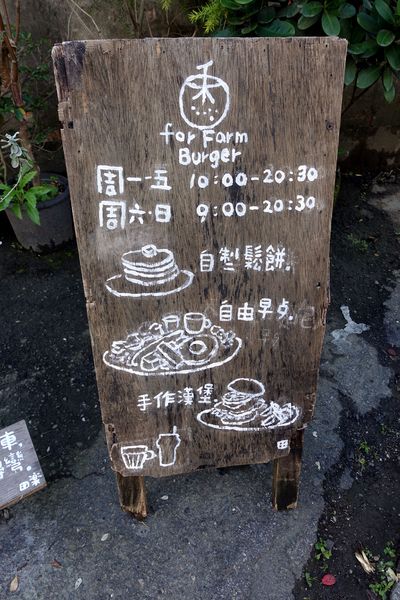 禾
for Farm
Burger
周一·五 10:00-20:30
周六·日 9:00-20:30
自製鬆餅.
自由早点.
手作漢堡.
田
車,
彎.
田楽